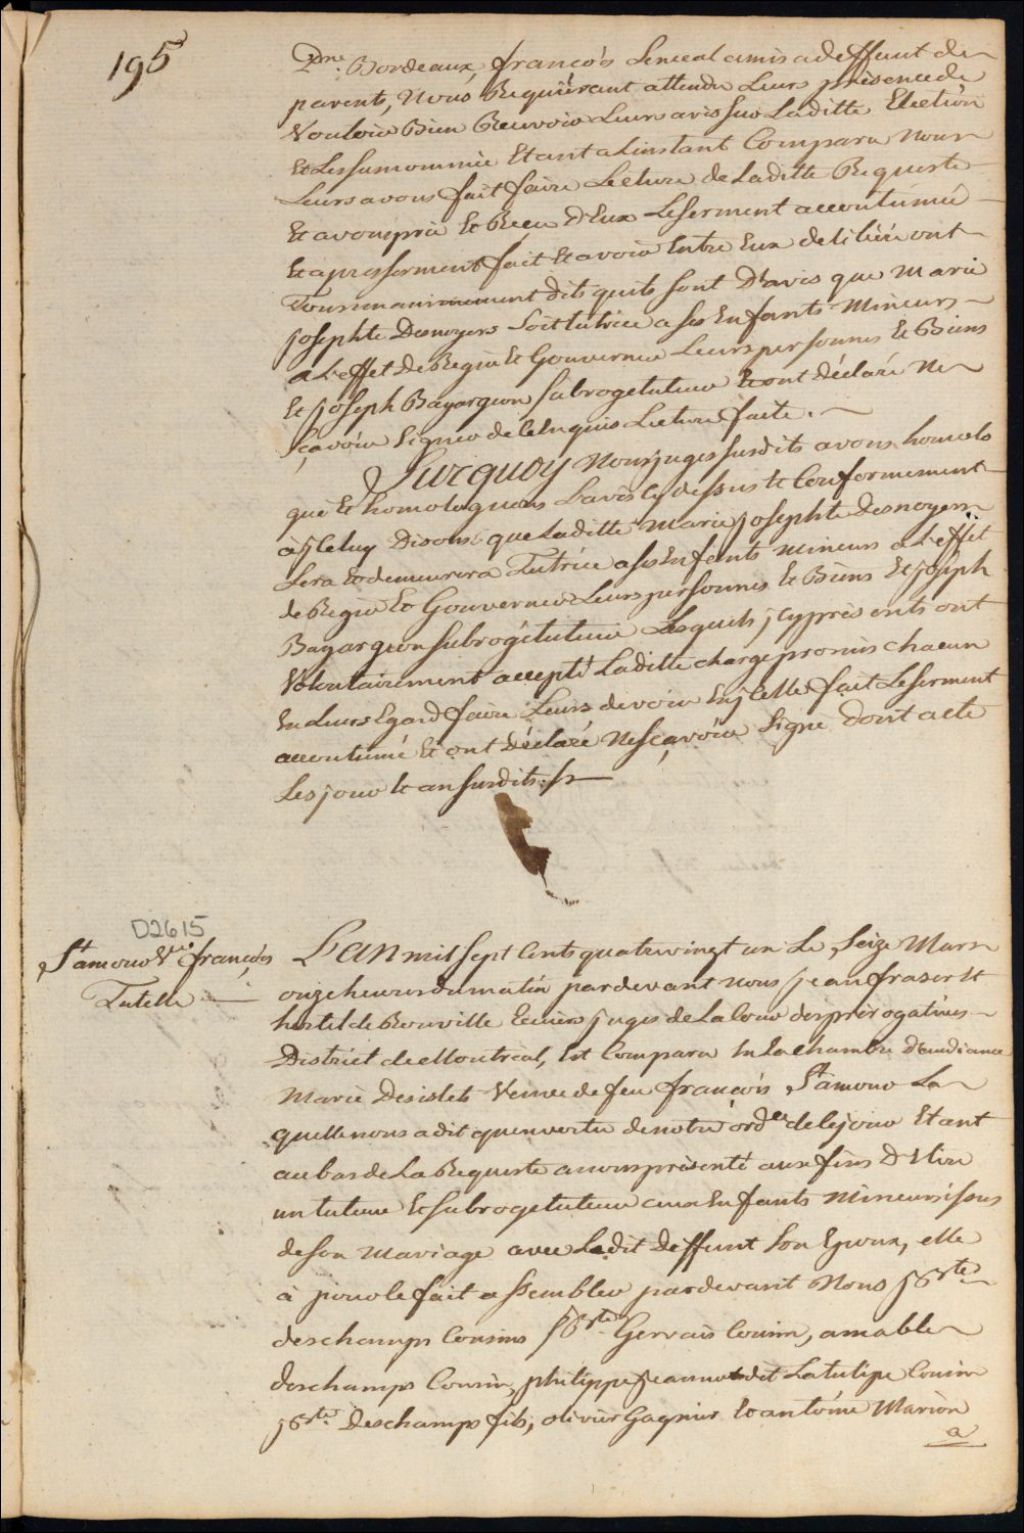 195
Pre. Bordeaux, francois Senecal amis a deffaut de
parents, Nous Requiérant attendu Leurs présence de
Vouloir Bien Recevoir Leurs avis sur Laditte Election
Et Les surnommée Etant a Linstant Comparu Nous
Leurs avons fait faire Lecture de Laditte Requeste
Et avons pris Et Reçu d'Eux Le serment accoutumé
Et apres serment fait Et avoir Entre Eux deliberé ont
Tous unanimement dits quils sont D'avis que Marie
josephte Desnoyers Soit tutrice a ses Enfants Mineurs
a L'effet de Regir Et Gouverner Leurs personnes Et Biens
Et joseph Bayargeon subrogetuteur Et ont déclaré Ne
sçavoir Signer de ce Enquis Lecture faite.
Surquoy Nous juges susdits avons homolo
gué Et homologuons Lavis Cy dessus Et Conformement
à jCeluy Disons que Laditte Marie josephte Desnoyers
Sera Et demeurera Tutrice a ses Enfants Mineurs a L'effet
de Regir Et Gouverner Leurs personnes Et Biens Et joseph
Bayargeon subrogétuteur Lesquels jcy présents ont
Volontairement accepté Laditte charge promis chacun
En Leurs Egard faire Leurs devoir En jCelle fait Le serment
accoutumé Et ont Déclaré Ne sçavoir Signé dont acte
Les jour Et an susdits
D2615
St amour Ve. françois
Tutelle
L'an mil Sept Cents quatrevingt un Le Seize Mars
onze heures du matin pardevant nous jean fraser Et
hertel de Rouville Ecuiers juges de La Cour des prérogatives
District de Montréal, Est Comparu En La chambre d'audiance
Marie Desislets Veuve de feu françois St amour La
quelle nous a dit quen vertu de notre ordce de Ce jour Etant
au bas de La Requeste a nous présenté aux fins D'Elire
un tuteur Et subrogetuteur aux Enfants Mineurs issus
de son Mariage avec Ledit deffunt Son Epoux, elle
à pour le fait assembler pardevant Nous jBte
deschamps Cousins jBte Gervais Cousin, amable
deschamps Cousin, philippe jeannot dit Latulipe Cousin
jBte Deschamps fils, olivier Gagnier Et antoine Marion
a